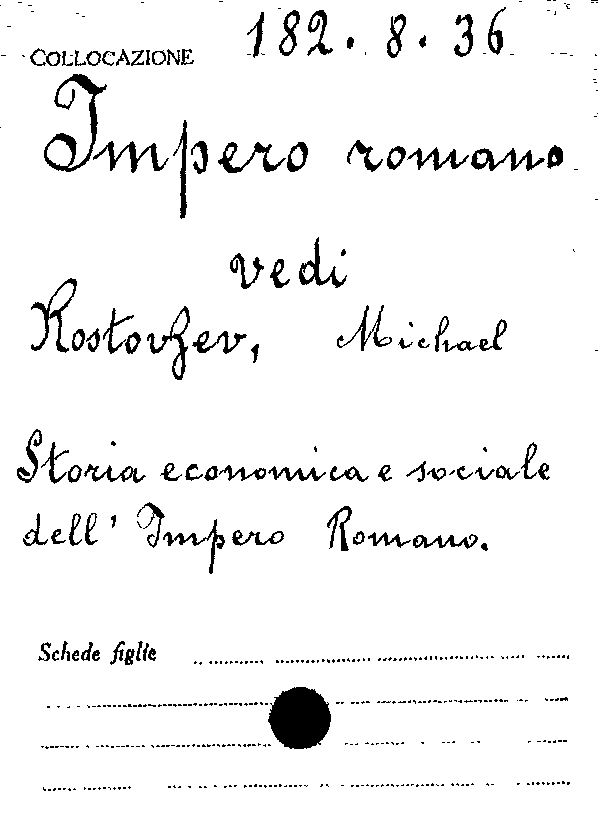 COLLOCAZIONE 182. 8. 36
Impero romano
vedi
Rostovzev, Michael
Storia economica e sociale
dell' Impero Romano.
Schede figlie